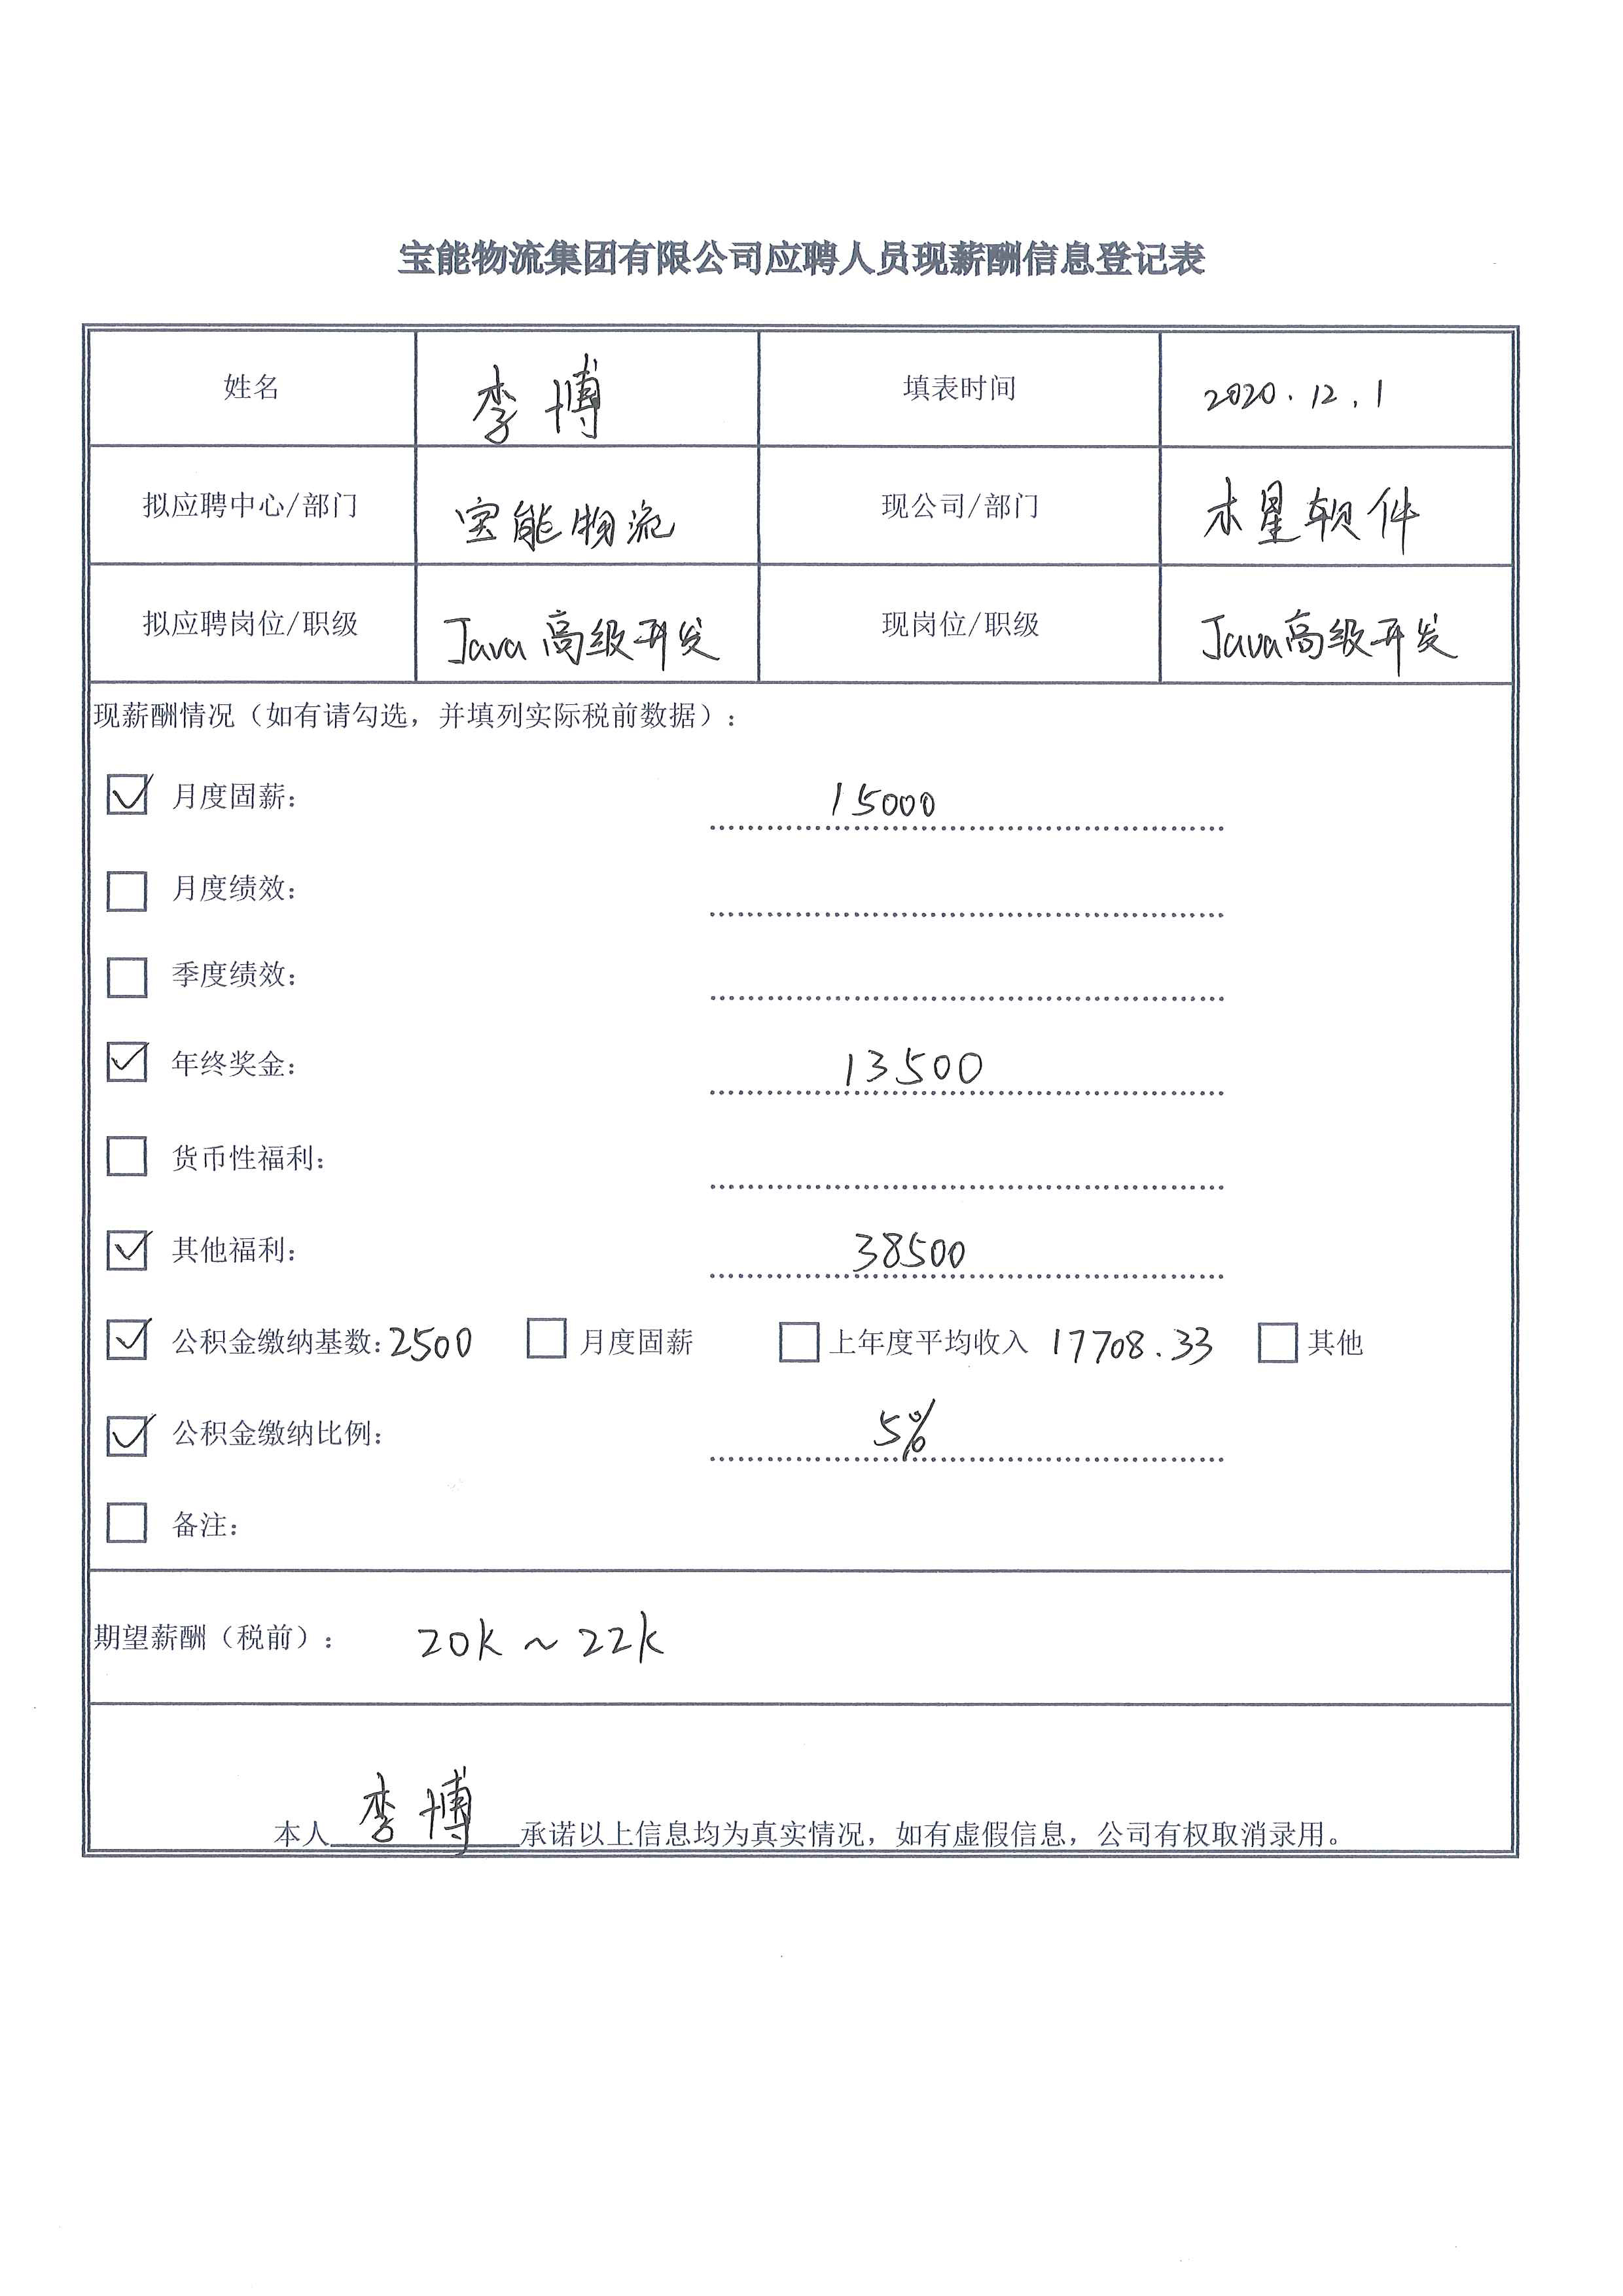 宝能物流集团有限公司应聘人员现薪酬信息登记表
姓名 李博 填表时间 2020.12.1
拟应聘中心/部门 宝能物流 现公司/部门 木星软件
拟应聘岗位/职级 Java高级开发 现岗位/职级 Java高级开发
现薪酬情况（如有请勾选，并填列实际税前数据）：
月度固薪： 15000
月度绩效：
季度绩效：
年终奖金： 13500
货币性福利：
其他福利： 38500
公积金缴纳基数: 2500 月度固薪 上年度平均收入 17708.33 其他
公积金缴纳比例: 5%
备注：
期望薪酬（税前）： 20k ~ 22k
本人 李博 承诺以上信息均为真实情况，如有虚假信息，公司有权取消录用。